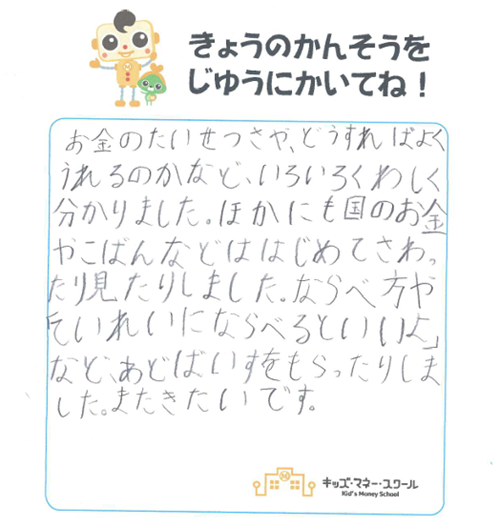 きょうのかんそうを
じゆうにかいてね！
お金のたいせつさや、どうすればよく
うれるのかなど、いろいろくわしく
分かりました。ほかにも国のお金
やこばんなどははじめてさわっ
たり見たりしました。ならべ方や
「ていれいにならべるといいよ」
など、あどばいすをもらったりしま
した。またきたいです。
キッズ・マネー・スクール
Kid's Money School